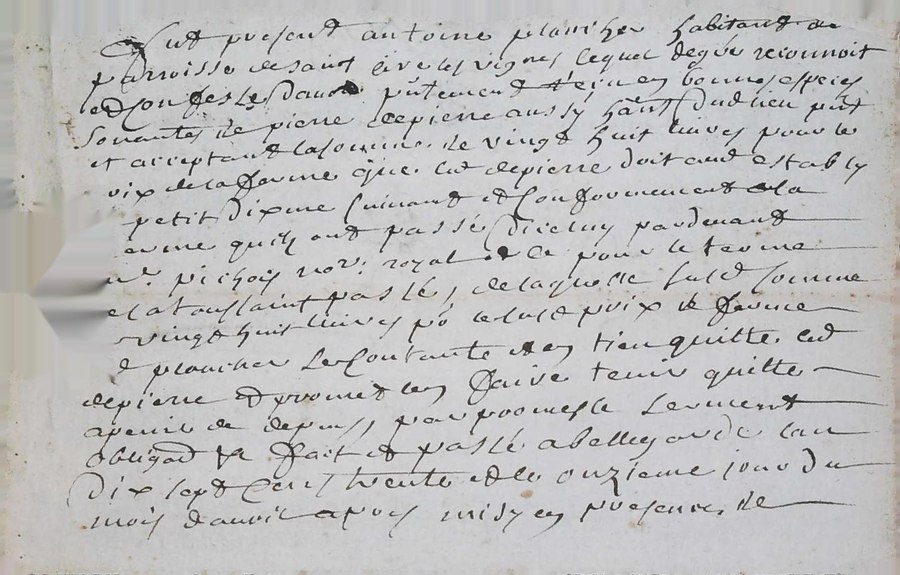 Fut present antoine plancher habitant de
parroisse de saint cire les vignes lequel de gré reconnoit
et Confesse davoir putement Recu en bonnes especes
sonantes de pierre depierre aussy hant dudlieu pnt
et acceptant la somme de vingt huit livres pour le
rix de la ferme que led depierre doit aud estably
petit dixme suivant et Conformement a la
erme quils ont passé diceluy pardevant
me pichois nore royal et ce pour le terme
de la toussaint passé, de laquelle susd somme
vingt huit livres po le susd prix de ferme
d plancher se Contante et en tien quitte led
depierre et promet len faire tenir quitte
a peine de depens, par promesse serment
obligaon &a fait et passé a bellegarde lan
dix sept Cent trente et le onzieme jour du
mois davril apres midy en presence de